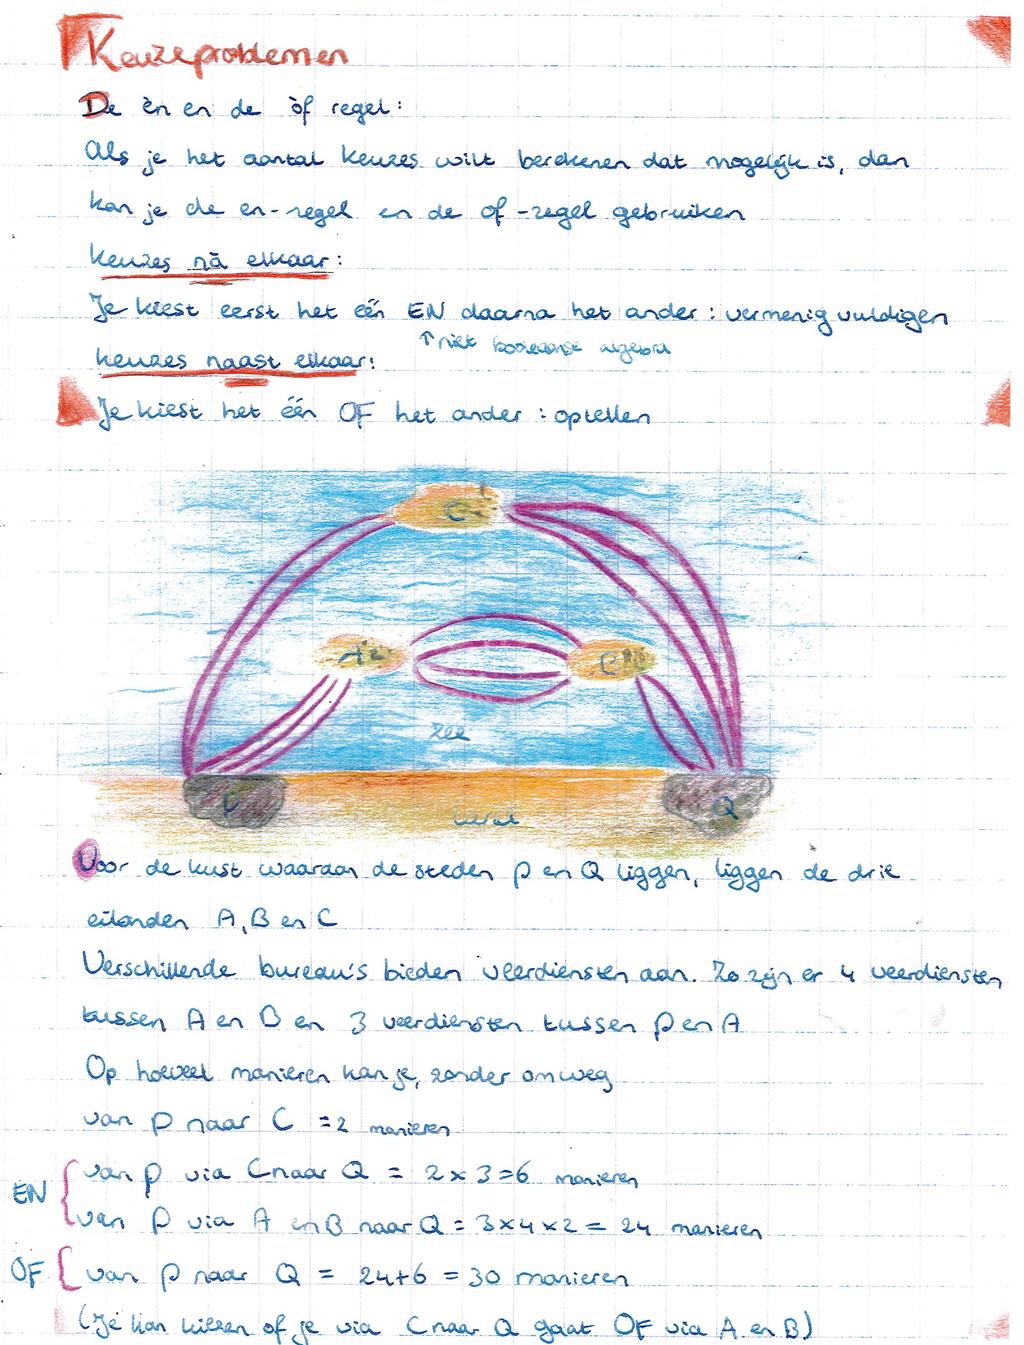 Keuzeproblemen
De èn en de òf regel:
Als je het aantal keuzes wilt berekenen dat mogelijk is, dan
kan je de en-regel en de of-regel gebruiken
keuzes nà elkaar:
Je kiest eerst het één EN daarna het ander: vermenigvuldigen
↑ niet booleaanse algebra
keuzes naast elkaar:
Je kiest het één OF het ander: optellen
C
A
B
zee
P
Q
Voor de kust waaraan de steden P en Q liggen, liggen de drie
eilanden A, B en C
Verschillende bureau's bieden veerdiensten aan. Zo zijn er 4 veerdiensten
tussen A en B en 3 veerdiensten tussen P en A
Op hoeveel manieren kan je, zonder omweg
van P naar C = 2 manieren
EN van P via C naar Q = 2 x 3 = 6 manieren
van P via A en B naar Q = 3 x 4 x 2 = 24 manieren
OF van P naar Q = 24 + 6 = 30 manieren
(Je kan kiezen of je via C naar Q gaat OF via A en B)